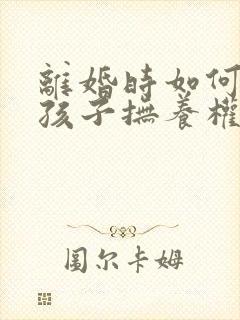 離婚時如何
孩子撫養權
圖尔卡姆